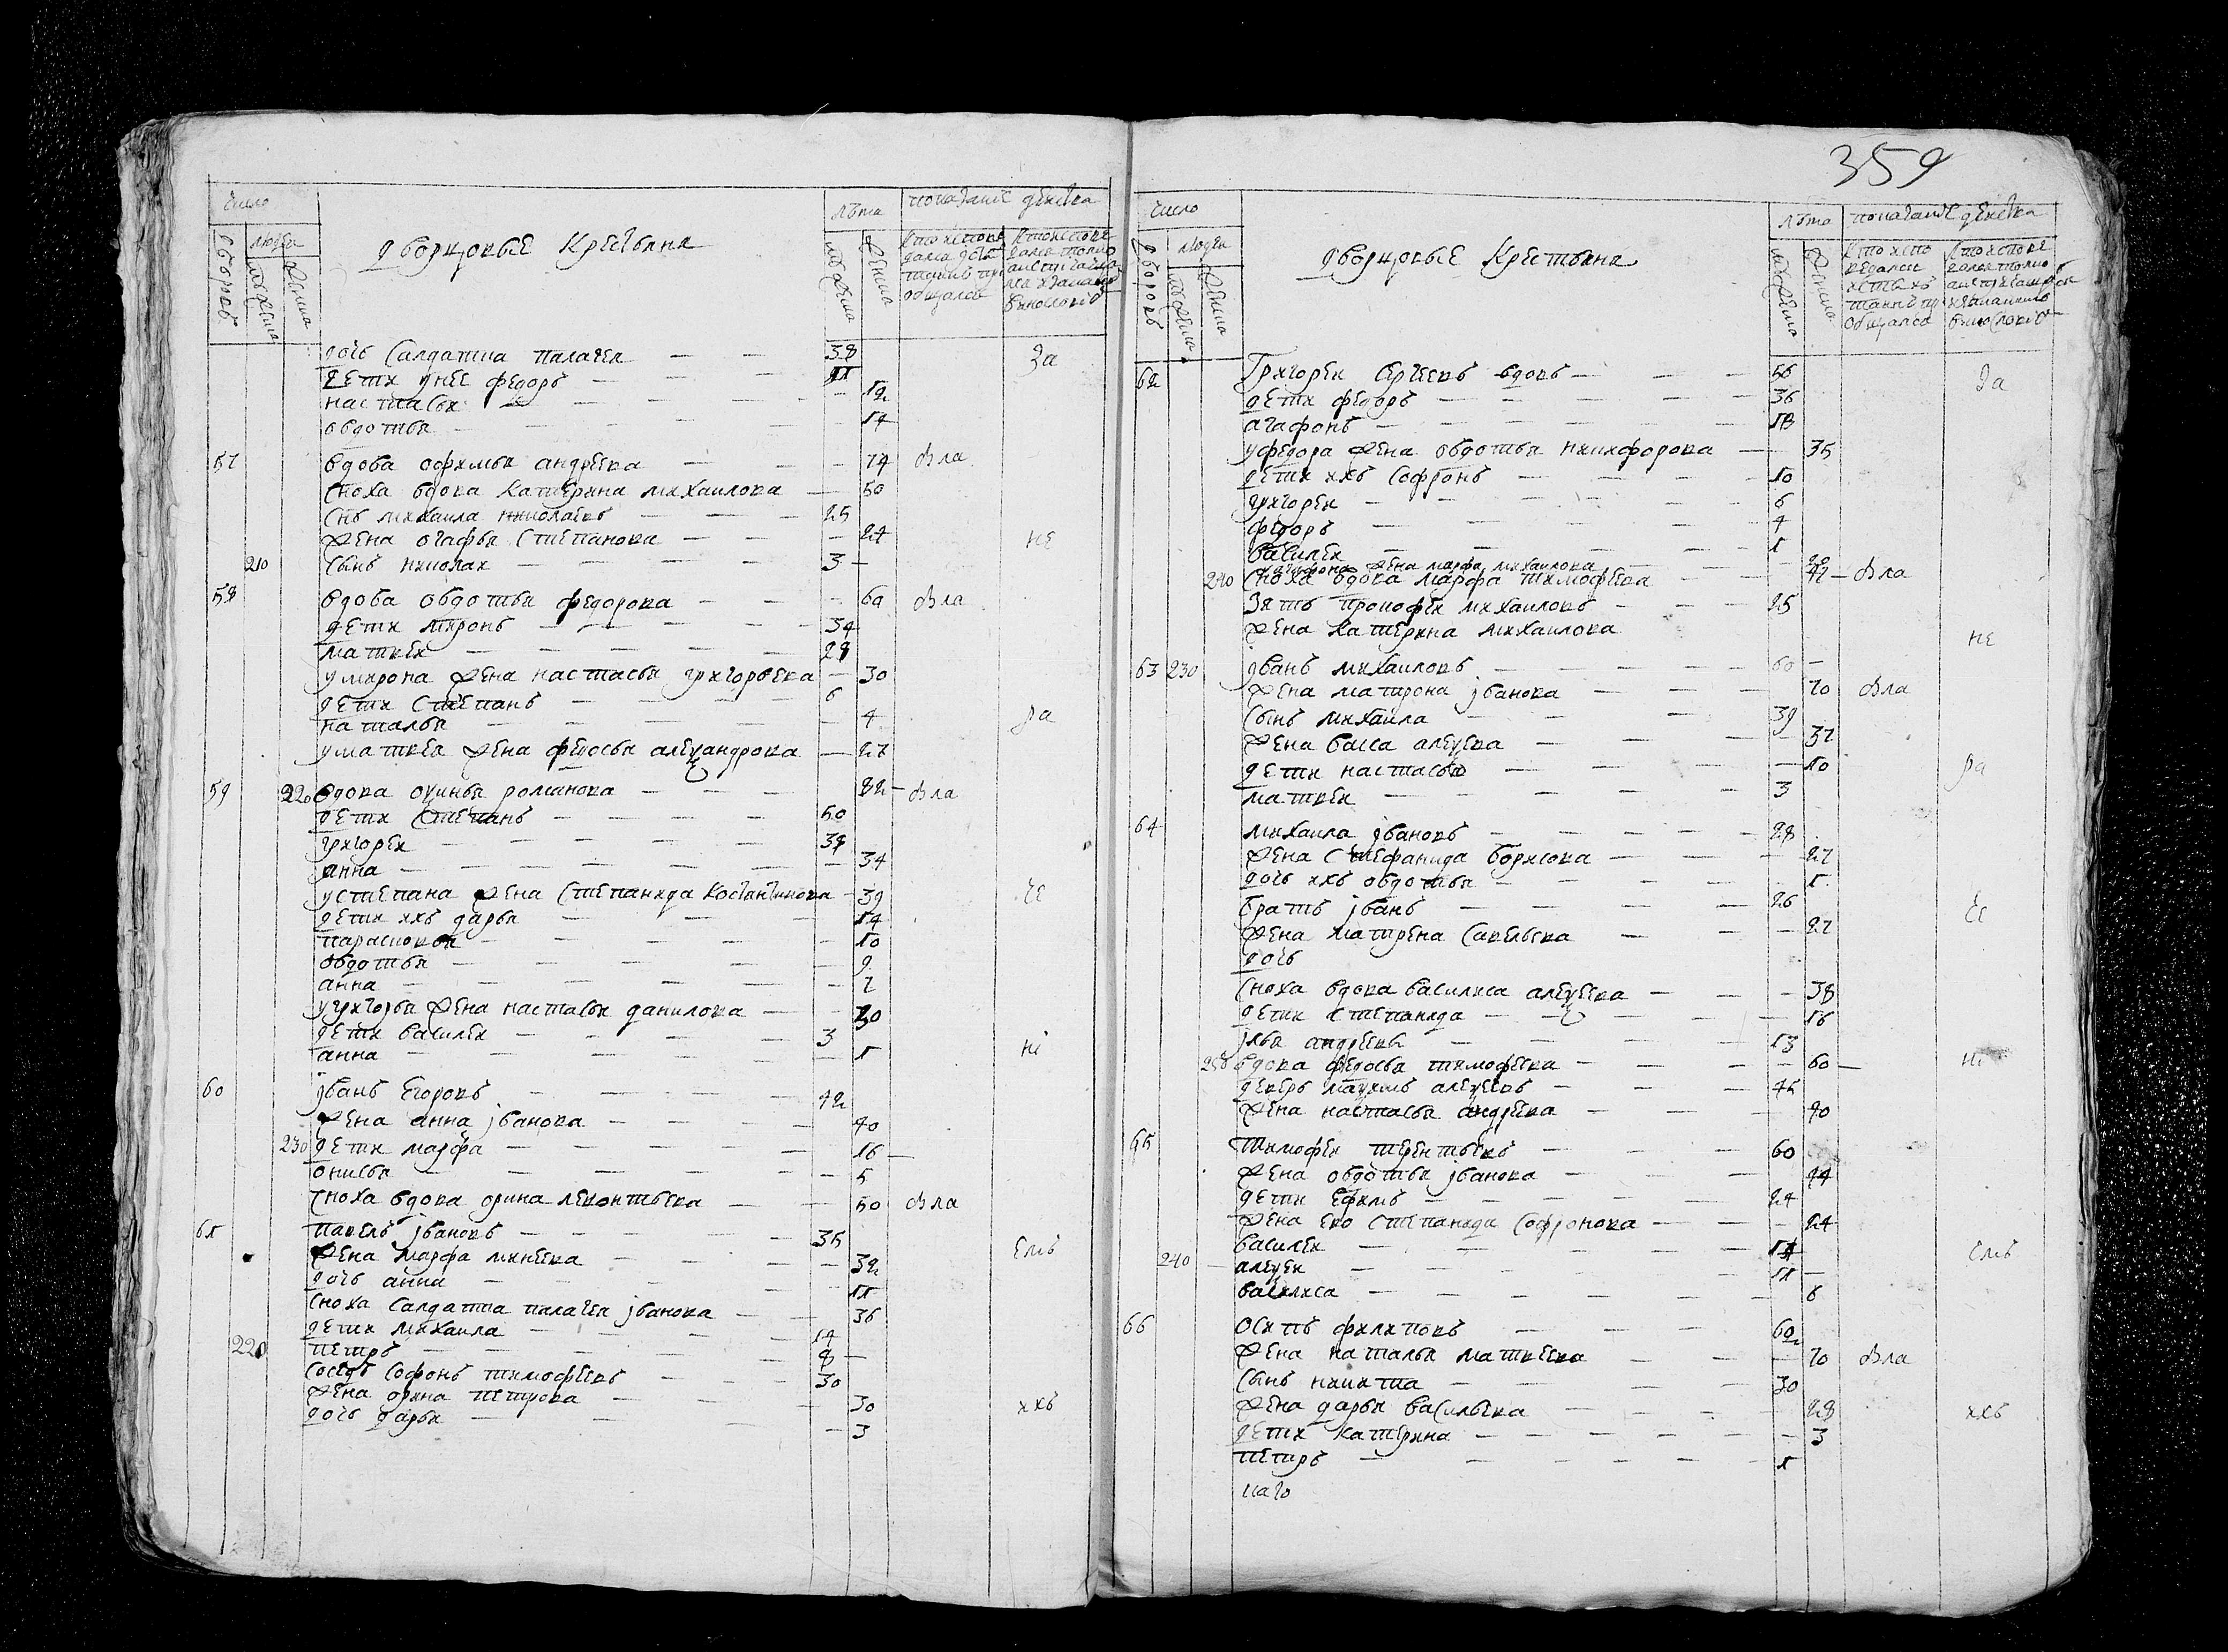 359
число
людеи
дворовъ
мужеска
женска
дворцовые крестьяня
лѣта
мужеска
женска
показание действа
доч салдатка палагея — — 38
За
дети у нее федоръ — — — 11
настасья — — — — — 12
овдотья — — — — — 14
57 вдова офимья андреева — — — 74 была
сноха вдова катерина михаилова — 50
снъ михаила николаевъ — — — 25
жена огафья степанова — — — 24
не
210 сынъ николаи — — — 3 —
58 вдова овдотья федорова — — — 60 была
дети миронъ — — — — 34
матвеи — — — — — 28
у мирона жена настасья григорьева — 30
дети степанъ — — — — 6
наталья — — — — — 4
ра
у матвея жена федосья алеѯандрова — 27
59 220 вдова оѯинья романова — — — 82 — была
дети степанъ — — — — 50
григореи — — — — — 38
анна — — — — — 34
у степана жена степанида костантинова — 39
че
дети ихъ дарья — — — — 14
парасковья — — — — 10
овдотья — — — — — 9
анна — — — — — 7
у григорья жена настасья данилова — — 30
дети василеи — — — — 3
анна — — — — — 1
ні
60 јванъ егоровъ — — — — 42
жена анна јванова — — — — 40
230 дети марфа — — — — 16 —
онисья — — — — — 5
сноха вдова орина леконтьева — — 50 была
61 павелъ јвановъ — — — — 35
жена марфа минеева — — — — 32
емъ
доч анна — — — — 11
сноха салдатка палагея јванова — — 36
дети михаила — — — — 14
220 петръ — — — — — 8 —
соседъ софонъ тимофеевъ — — — 30
жена орина петрова — — — — 30
ихъ
доч дарья — — — — 3
число
людеи
дворовъ
мужеска
женска
дворцовые крестьяня
лѣта
мужеска
женска
показание действа
62 григореи сергеевъ вдовъ — — — 56
За
дети федоръ — — — — — 36
агафонъ — — — — — 18
у федора жена овдотья никифорова — — 35
дети ихъ софронъ — — — — 10
григореи — — — — — 6
федоръ — — — — — 4
василеи — — — — — 1
у агафона жена марфа михаилова — 22
240 сноха вдова марфа тимофеева — — 42 — была
зять прокофеи михаиловъ — — — 25
жена катерина михаилова
не
63 230 јванъ михаиловъ — — — — 60 —
жена матрона јванова — — — 70 была
сынъ михаила — — — — 39
жена васса алеѯеева — — — — 37
дети настасья — — — — 10
ра
матвеи — — — — — 3
64 михаила јвановъ — — — — 28
жена стефанида борисова — — — 27
доч ихъ овдотья — — — — 1
братъ јванъ — — — — 26
че
жена матрена савельева — — — 27
доч
сноха вдова василиса алеѯеева — — — 38
дети степанида — — — — 16
јлья андреевъ — — — — 13
250 вдова федосья тимофеева — — — 60 —
ні
деверь маѯимъ алеѯеевъ — — — 45
жена настасья андреева — — — 40
65 тимофеи терентьевъ — — — 60
жена овдотья јванова — — — 44
дети ефимъ — — — — — 24
жена ево степанида софронова — — — 24
василеи — — — — — 14
емъ
240 алеѯеи — — — — — 11 —
василиса — — — — — 6
66 осипъ филиповъ — — — 62
жена наталья матвеева — — — 70 была
сынъ никита — — — — 30
жена дарья васильева — — — — 28
ихъ
дети катерина — — — — — 3
петръ — — — — — 1
каго